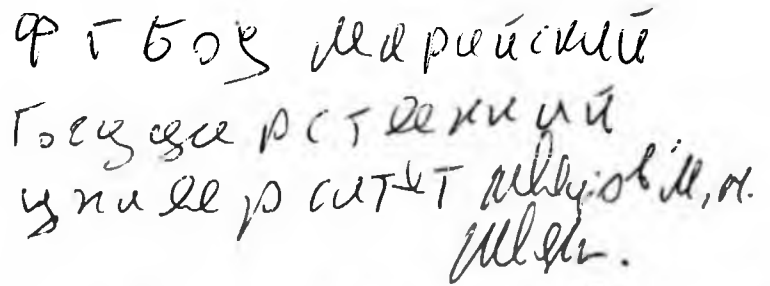 ФГБОУ Марийский
Государственный
университет М.Н.